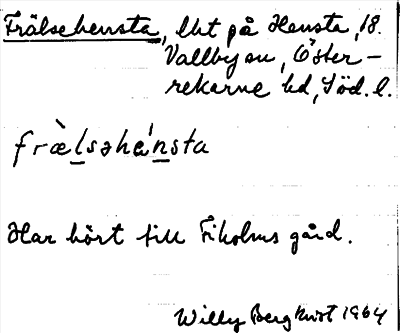 Frälsehensta, lht på Hensta, 18.
Vallby sn, Öster-
rekarne hd, Söd. l.
fràlsəhénsta
Har hört till Fiholms gård.
Willy Bergkvist 1964